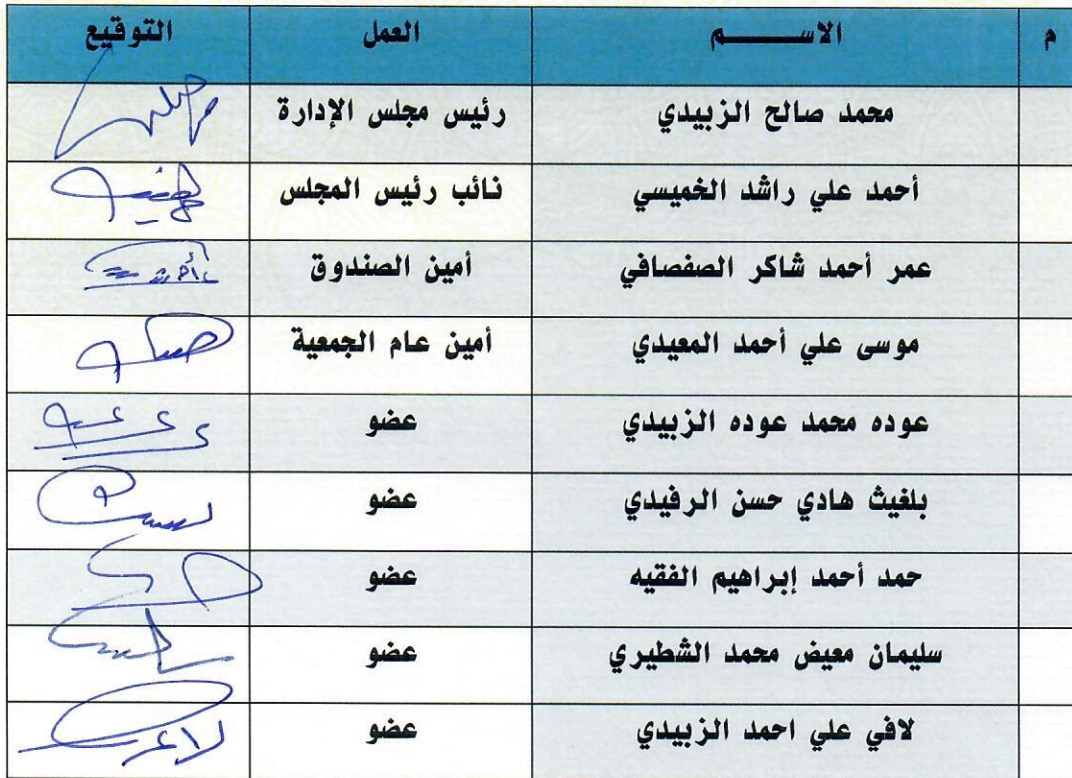 م الاســــــم العمل التوقيع
محمد صالح الزبيدي رئيس مجلس الإدارة
أحمد علي راشد الخميسي نائب رئيس المجلس
عمر أحمد شاكر الصفصافي أمين الصندوق
موسى علي أحمد المعيدي أمين عام الجمعية
عوده محمد عوده الزبيدي عضو
بلغيث هادي حسن الرفيدي عضو
حمد أحمد إبراهيم الفقيه عضو
سليمان معيض محمد الشطيري عضو
لافي علي احمد الزبيدي عضو